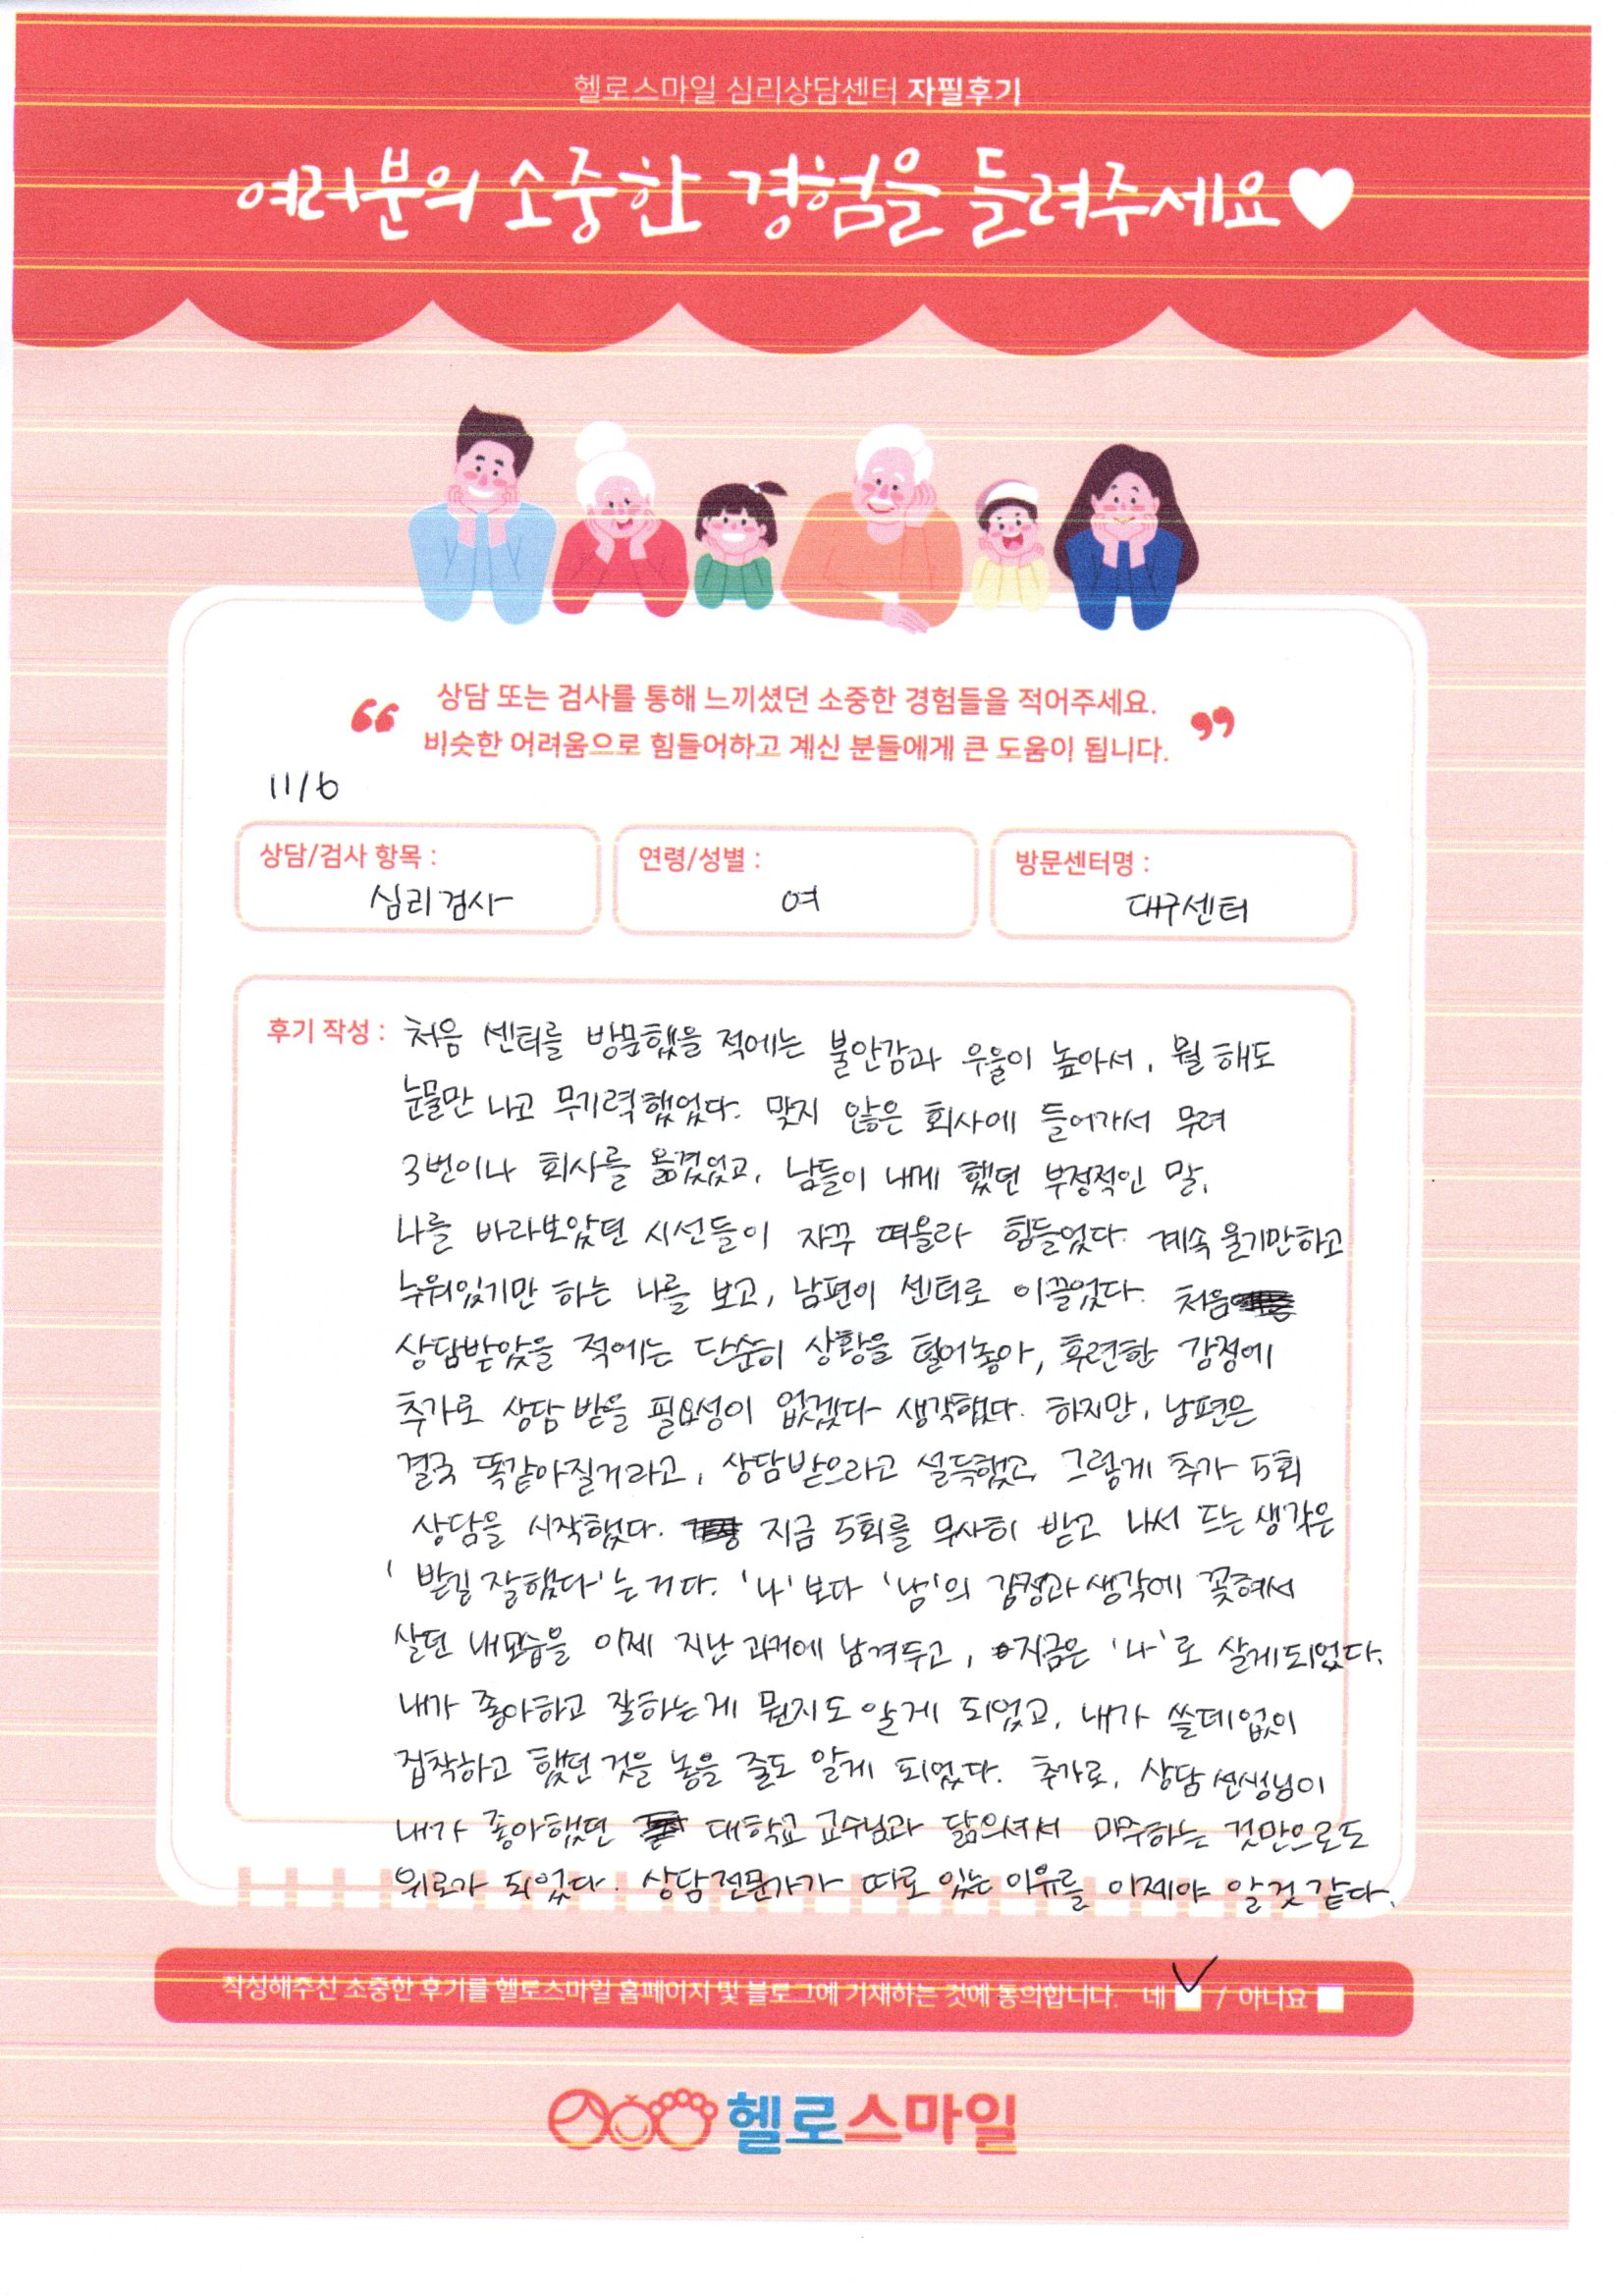 헬로스마일 심리상담센터 자필후기
여러분의 소중한 경험을 들려주세요♥
“ 상담 또는 검사를 통해 느끼셨던 소중한 경험들을 적어주세요. ”
비슷한 어려움으로 힘들어하고 계신 분들에게 큰 도움이 됩니다.
11/6
상담/검사 항목 : 심리검사
연령/성별 : 여
방문센터명 : 대구센터
후기 작성 : 처음 센터를 방문했을 적에는 불안감과 우울이 높아서, 뭘 해도
눈물만 나고 무기력했었다. 맞지 않은 회사에 들어가서 무려
3번이나 회사를 옮겼었고, 남들이 내게 했던 부정적인 말,
나를 바라보았던 시선들이 자꾸 떠올라 힘들었다. 계속 울기만하고
누워있기만 하는 나를 보고, 남편이 센터로 이끌었다. 처음
상담받았을 적에는 단순히 상황을 털어놓아, 후련한 감정에
추가로 상담 받을 필요성이 없겠다 생각했다. 하지만, 남편은
결국 똑같아질거라고, 상담받으라고 설득했고, 그렇게 추가 5회
상담을 시작했었다. 지금 5회를 무사히 받고 나서 드는 생각은
'받길 잘했다'는 거다. '나'보다 '남'의 감정과 생각에 꽂혀서
살던 내모습을 이제 지난 과거에 남겨두고, 지금은 '나'로 살게되었다.
내가 좋아하고 잘하는게 뭔지도 알게 되었고, 내가 쓸데없이
집착하고 했던 것을 놓을 줄도 알게 되었다. 추가로, 상담선생님이
내가 좋아했던 대학교 교수님과 닮으셔서 마주하는 것만으로도
위로가 되었다. 상담전문가가 따로 있는 이유를 이제야 알것 같다.
작성해주신 소중한 후기를 헬로스마일 홈페이지 및 블로그에 기재하는 것에 동의합니다. 네 / 아니요
헬로스마일